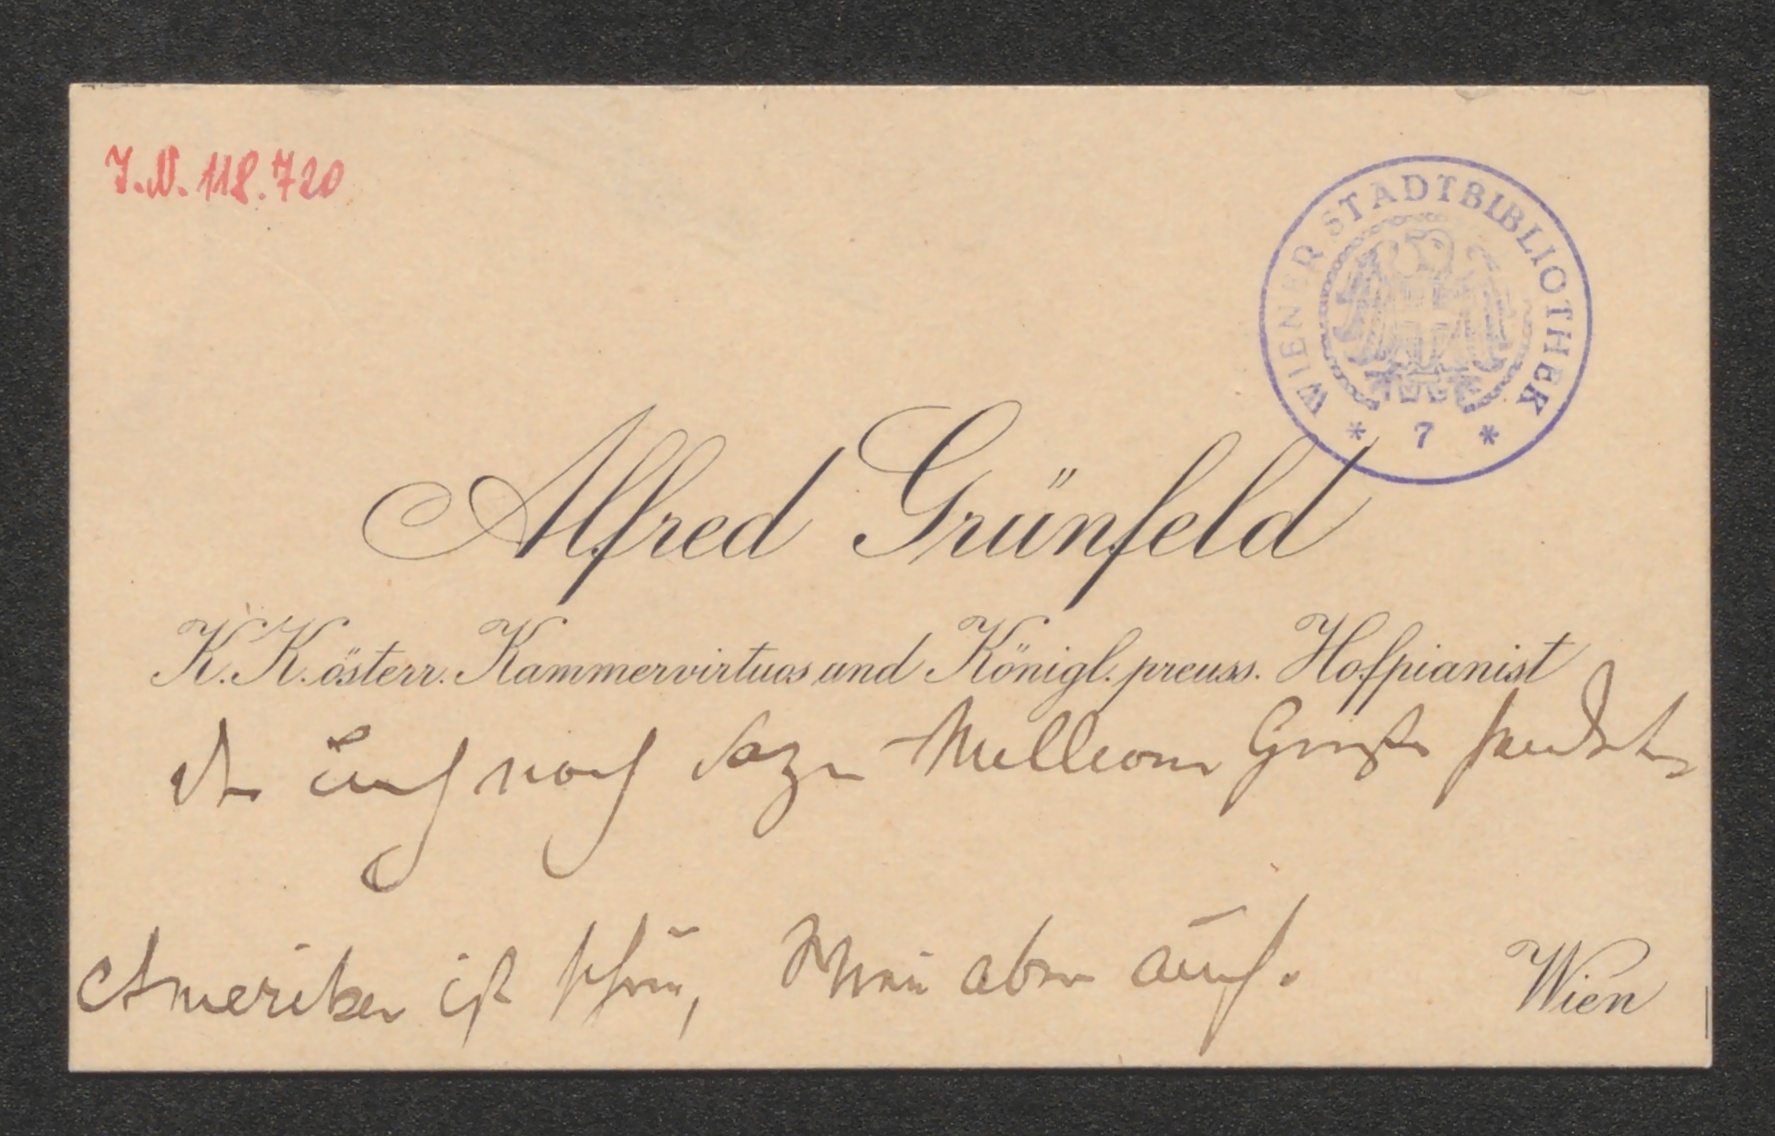 J.N. 118.720
WIENER STADTBIBLIOTHEK
* 7 *
Alfred Grünfeld
K. K. österr. Kammervirtuos und Königl. preuss. Hofpianist
der Euch noch dazu Millionen Grüße sendet
Amerika ist schön, Wien aber auch.
Wien